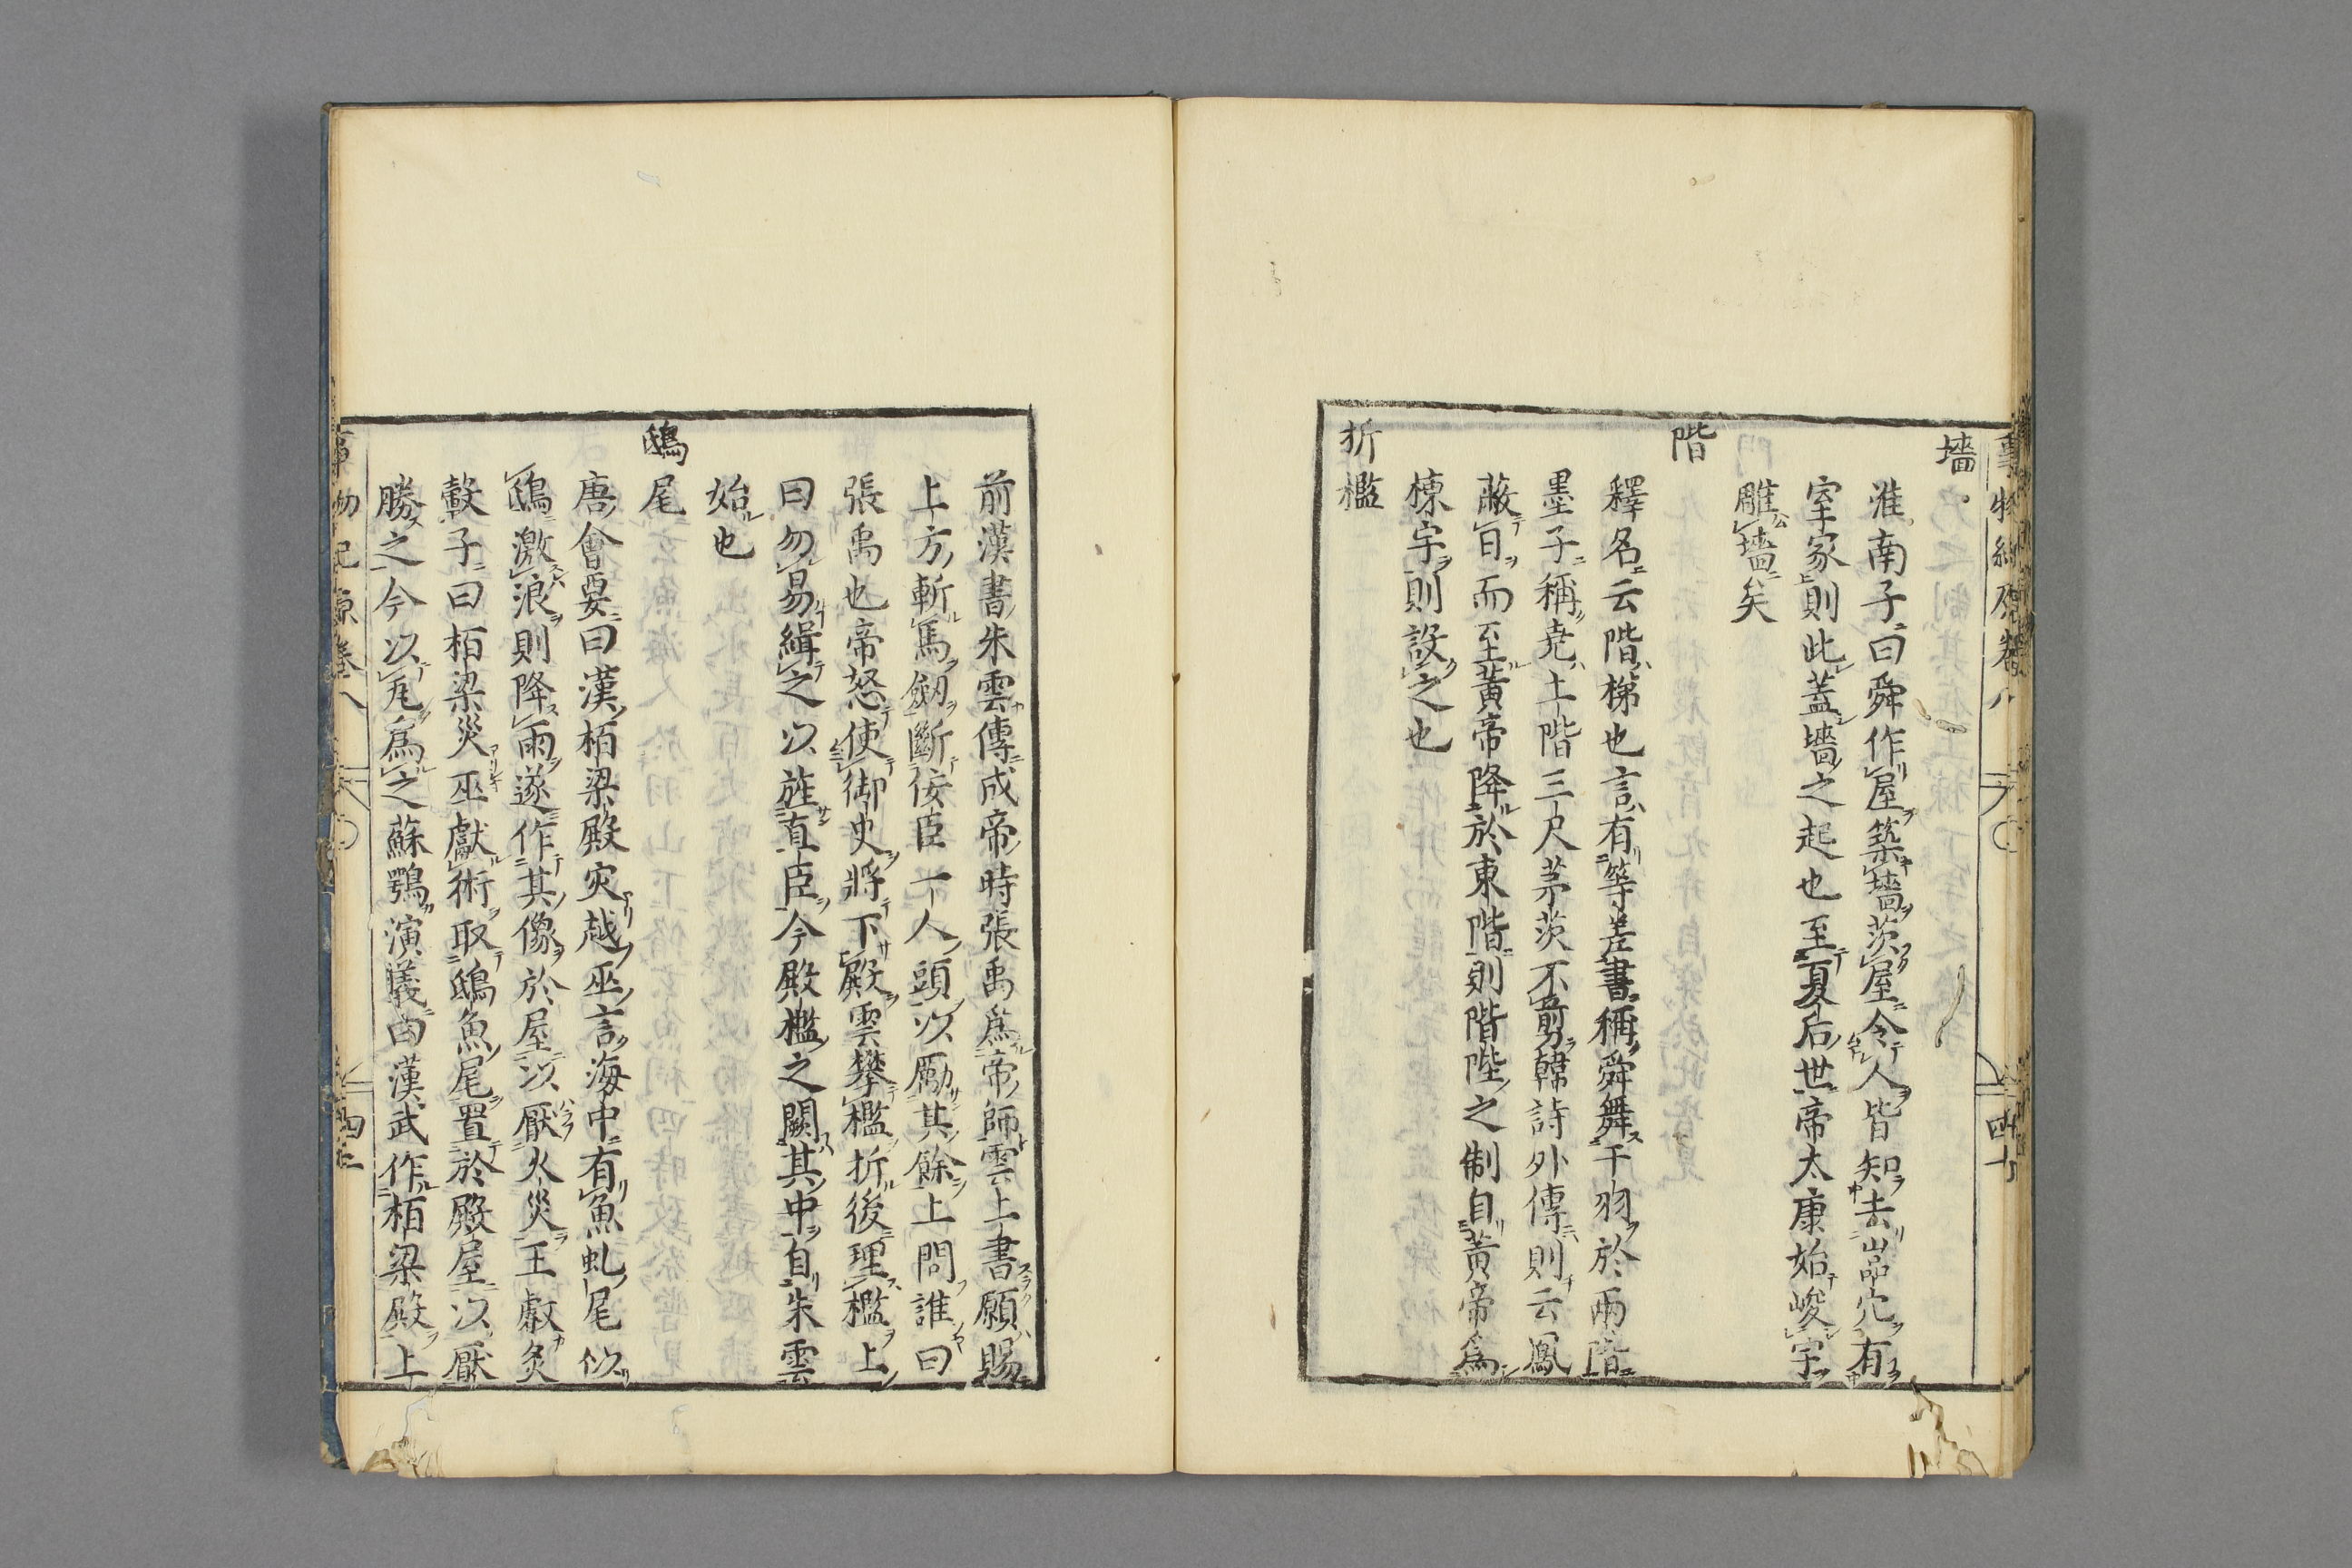 墻
淮南子曰舜作屋築墻茨屋令人皆知去嵓穴有
室家則此蓋墻之起也至夏后世帝太康始峻宇
雕墻矣
階
釋名云階梯也言有等差書稱舜舞干羽於兩階
墨子稱堯上階三尺茅茨不剪韓詩外傳則云鳳
蔽日而至黃帝降於東階則階陛之制自黃帝爲
棟宇則設之也
折檻
前漢書朱雲傳成帝時張禹爲帝師雲上書願賜
上方斬馬劔斷佞臣一人頭以勵其餘上問誰曰
張禹也帝怒使御史將下殿雲攀檻折後理檻上
曰勿易緝之以旌直臣今殿檻之闕其中自朱雲
始也
鴟尾
唐會要曰漢栢梁殿灾越巫言海中有魚虬尾似
鴟激浪則降雨遂作其像於屋以厭火災王叡炙
轂子曰栢梁災巫獻術取鴟魚尾置於殿屋以厭
勝之今以瓦爲之蘇鶚演義曰漢武作栢梁殿上
事物紀原卷八